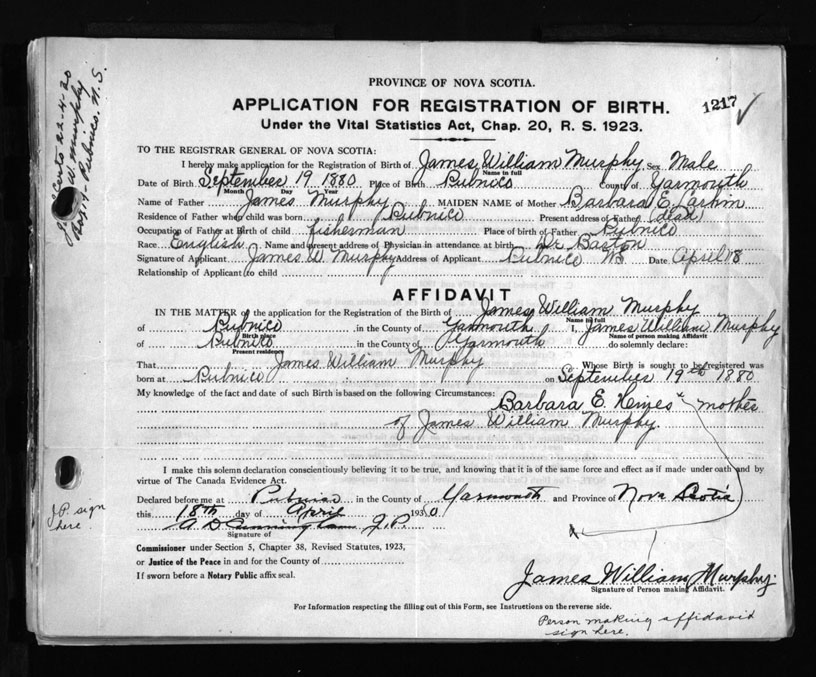 PROVINCE OF NOVA SCOTIA.
APPLICATION FOR REGISTRATION OF BIRTH.
1217 ✓
Under the Vital Statistics Act, Chap. 20, R. S. 1923.
TO THE REGISTRAR GENERAL OF NOVA SCOTIA:
I hereby make application for the Registration of Birth of James William Murphy Sex Male
Name in full
Date of Birth September 19 1880 Place of Birth Pubnico County of Yarmouth
Month Day Year
Name of Father James Murphy MAIDEN NAME of Mother Barbara E. Larkin
Residence of Father when child was born Pubnico Present address of Father (dead)
Occupation of Father at Birth of child fisherman Place of birth of Father Pubnico
Race English Name and present address of Physician in attendance at birth Dr. Baston
Signature of Applicant James W. Murphy Address of Applicant Pubnico Date April 18
Relationship of Applicant to child
AFFIDAVIT
IN THE MATTER of the application for the Registration of the Birth of James William Murphy
Name in full
of Pubnico in the County of Yarmouth I, James William Murphy
Birth place Name of person making Affidavit
of Pubnico in the County of Yarmouth do solemnly declare:
Present residence
That James William Murphy Whose Birth is sought to be registered was
born at Pubnico on September 19th 1880
My knowledge of the fact and date of such Birth is based on the following Circumstances: Barbara E. Hines mother
of James William Murphy.
I make this solemn declaration conscientiously believing it to be true, and knowing that it is of the same force and effect as if made under oath and by
virtue of The Canada Evidence Act.
Declared before me at Pubnico in the County of Yarmouth and Province of Nova Scotia
this 18th day of April 1930
A D Cunningham J.P.
Signature of
Commissioner under Section 5, Chapter 38, Revised Statutes, 1923,
or Justice of the Peace in and for the County of
If sworn before a Notary Public affix seal.
James William Murphy.
Signature of Person making Affidavit.
For Information respecting the filling out of this Form, see Instructions on the reverse side.
Person making affidavit
sign here.
JP sign
here
Certs 22-4-30
W Murphy
Pubnico, N. S.